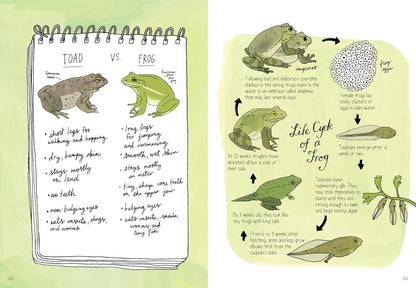 TOAD
VS.
FROG
• short legs for
walking and hopping
• dry, bumpy skin
• stays mostly
on land
• no teeth
• non-bulging eyes
• eats insects, slugs,
and worms
• long legs
for jumping
and swimming
• smooth, wet skin
• stays mostly
in water
• tiny, sharp cone teeth
on the upper jaw
• bulging eyes
• eats insects, snails,
worms and
tiny fish
amplexus
Following loud and elaborate courtship
displays in the spring, frogs mate in the
water in an embrace called amplexus
that may last several days.
frog
eggs
Female frogs lay
sticky clusters of
eggs in calm water.
Tadpoles emerge after a
week or two.
Tadpoles have
rudimentary gills. They
may stick themselves to
plants until they are
strong enough to swim
and begin eating algae.
From 6 to 9 weeks after
hatching, arms and legs grow
elbows-first from the
tadpole's sides.
By 9 weeks old, they look like
tiny frogs with long tails.
By 12 weeks, froglets have
absorbed all but a stub of
their tails.
Life Cycle
of a
Frog